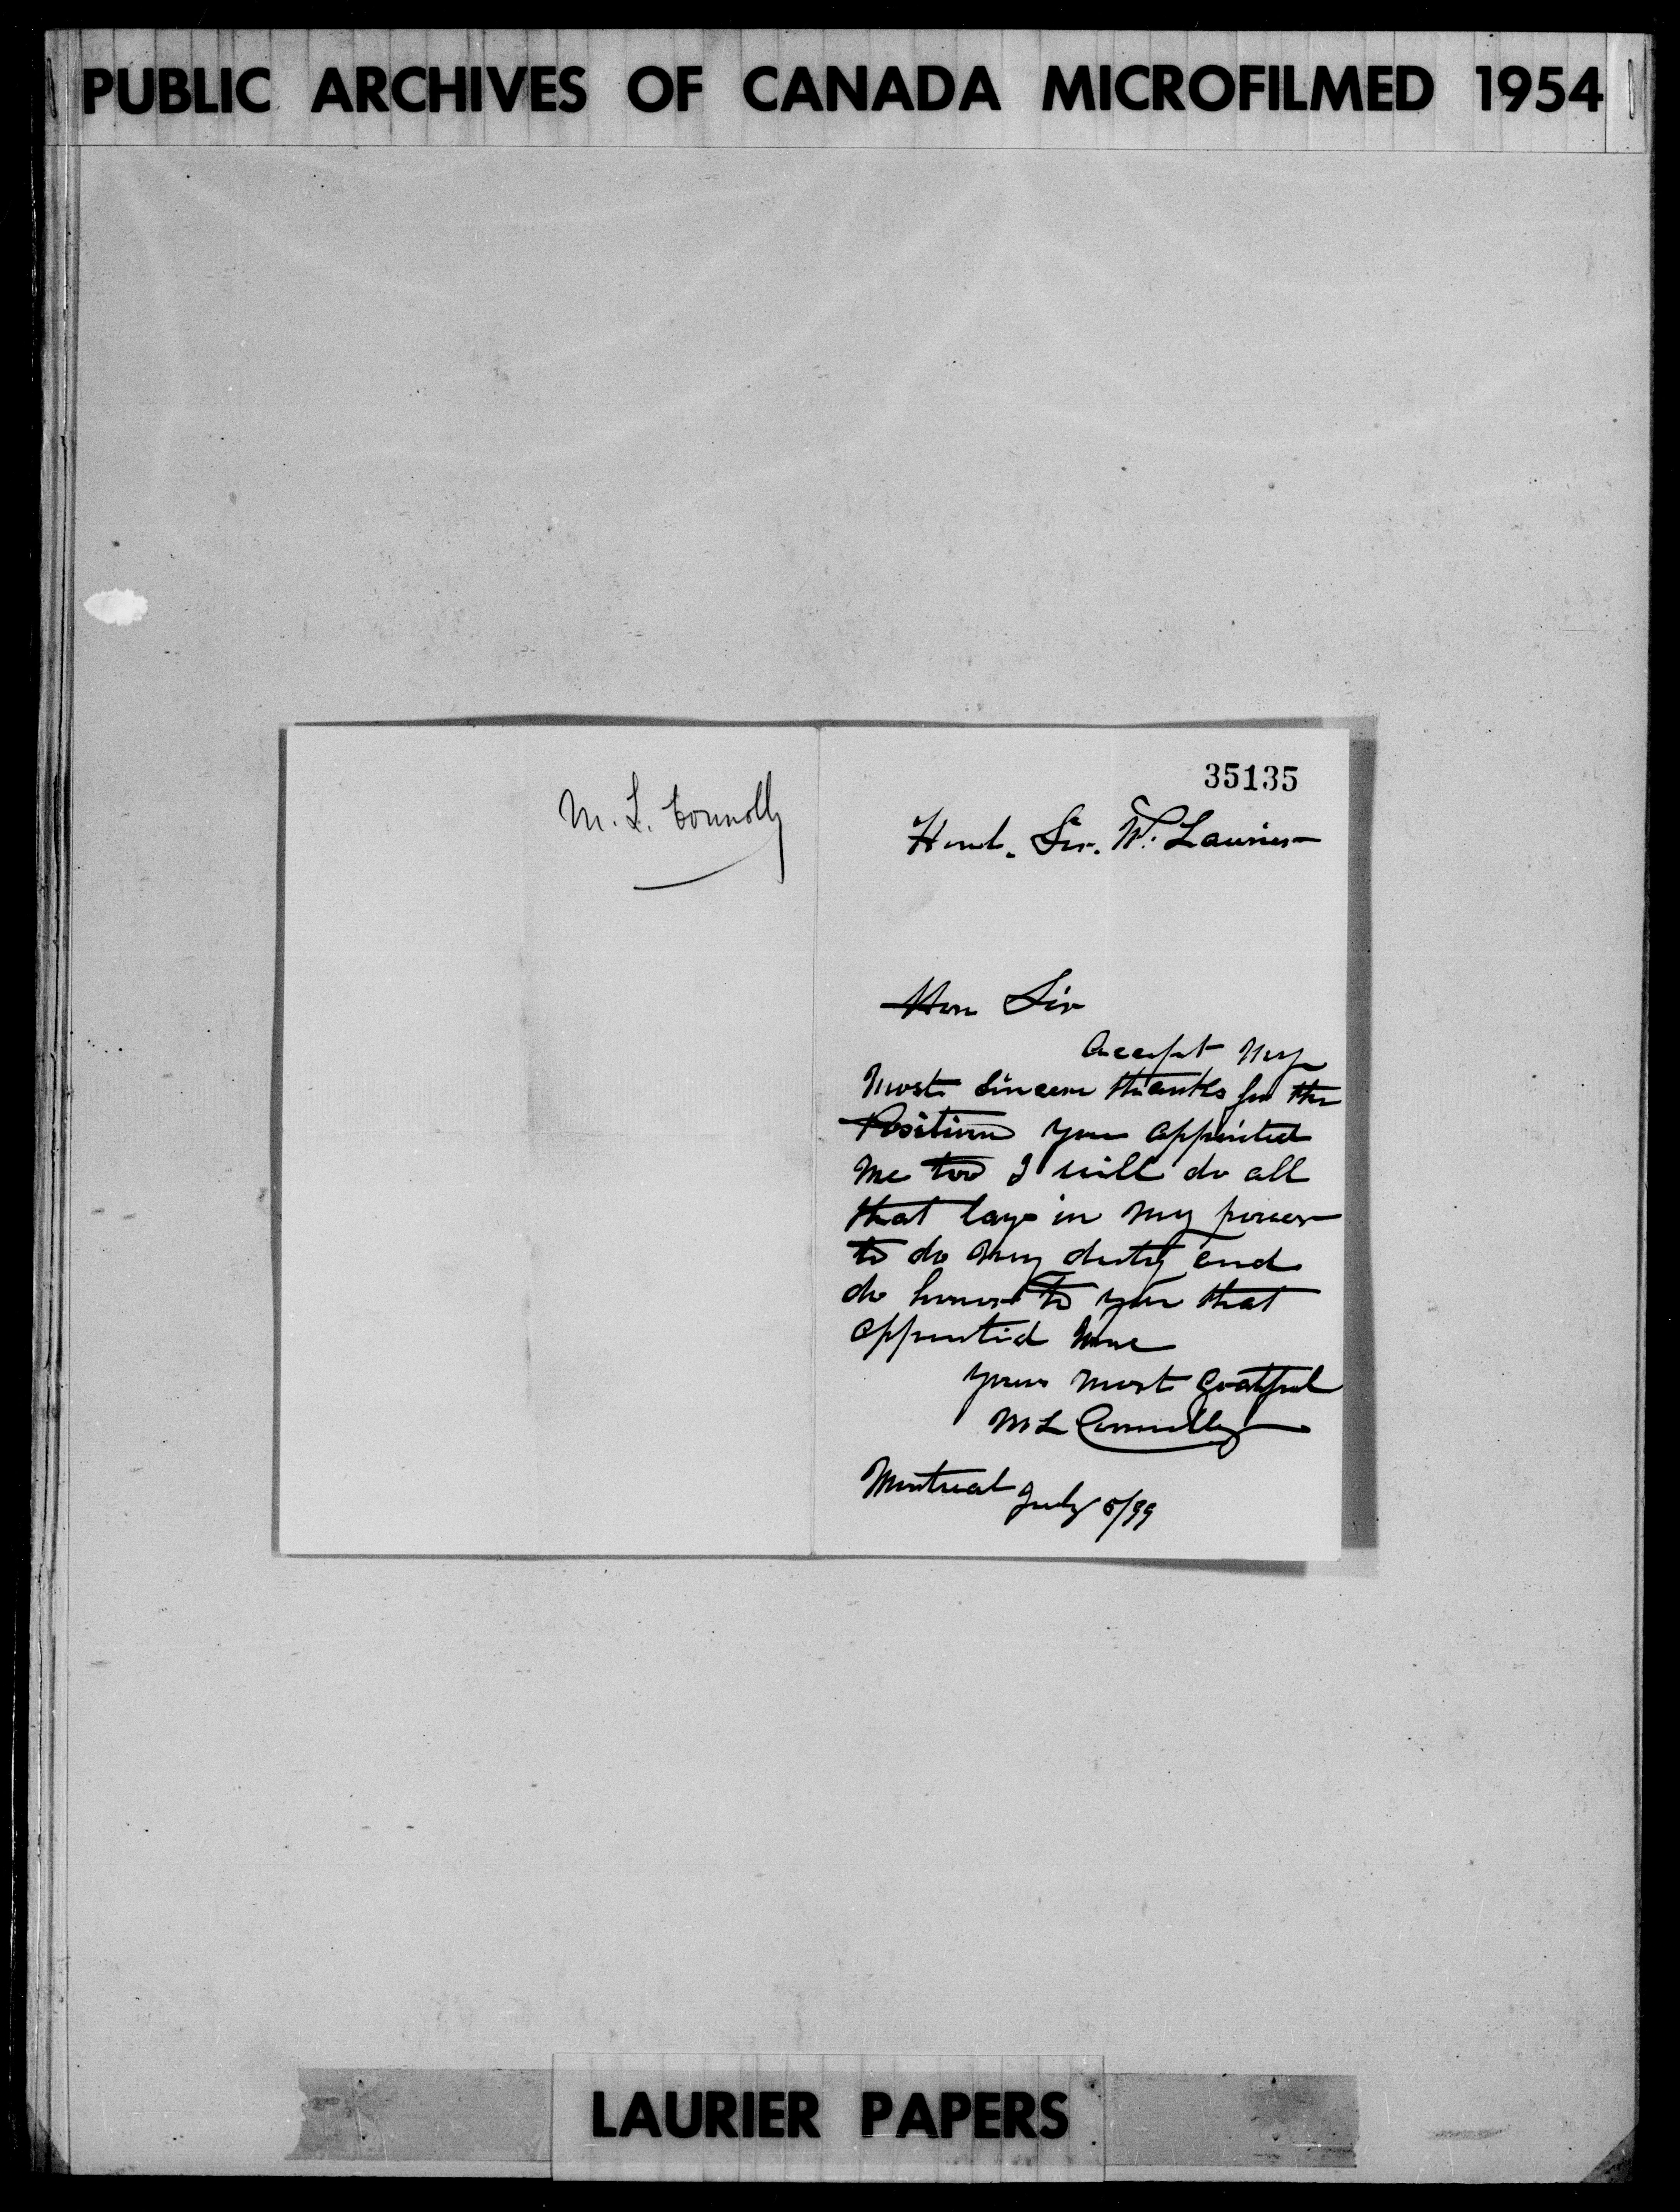 PUBLIC ARCHIVES OF CANADA MICROFILMED 1954
M. L. Connolly
35135
Honl. Sir. W. Laurier
Hon Sir
Accept my
most sincere thanks for the
Position you appointed
me too I will do all
that lays in my power
to do my duty and
do honor to you that
appointid me
yours most gratful
M L Connolly
Montreal July 5/99
LAURIER PAPERS